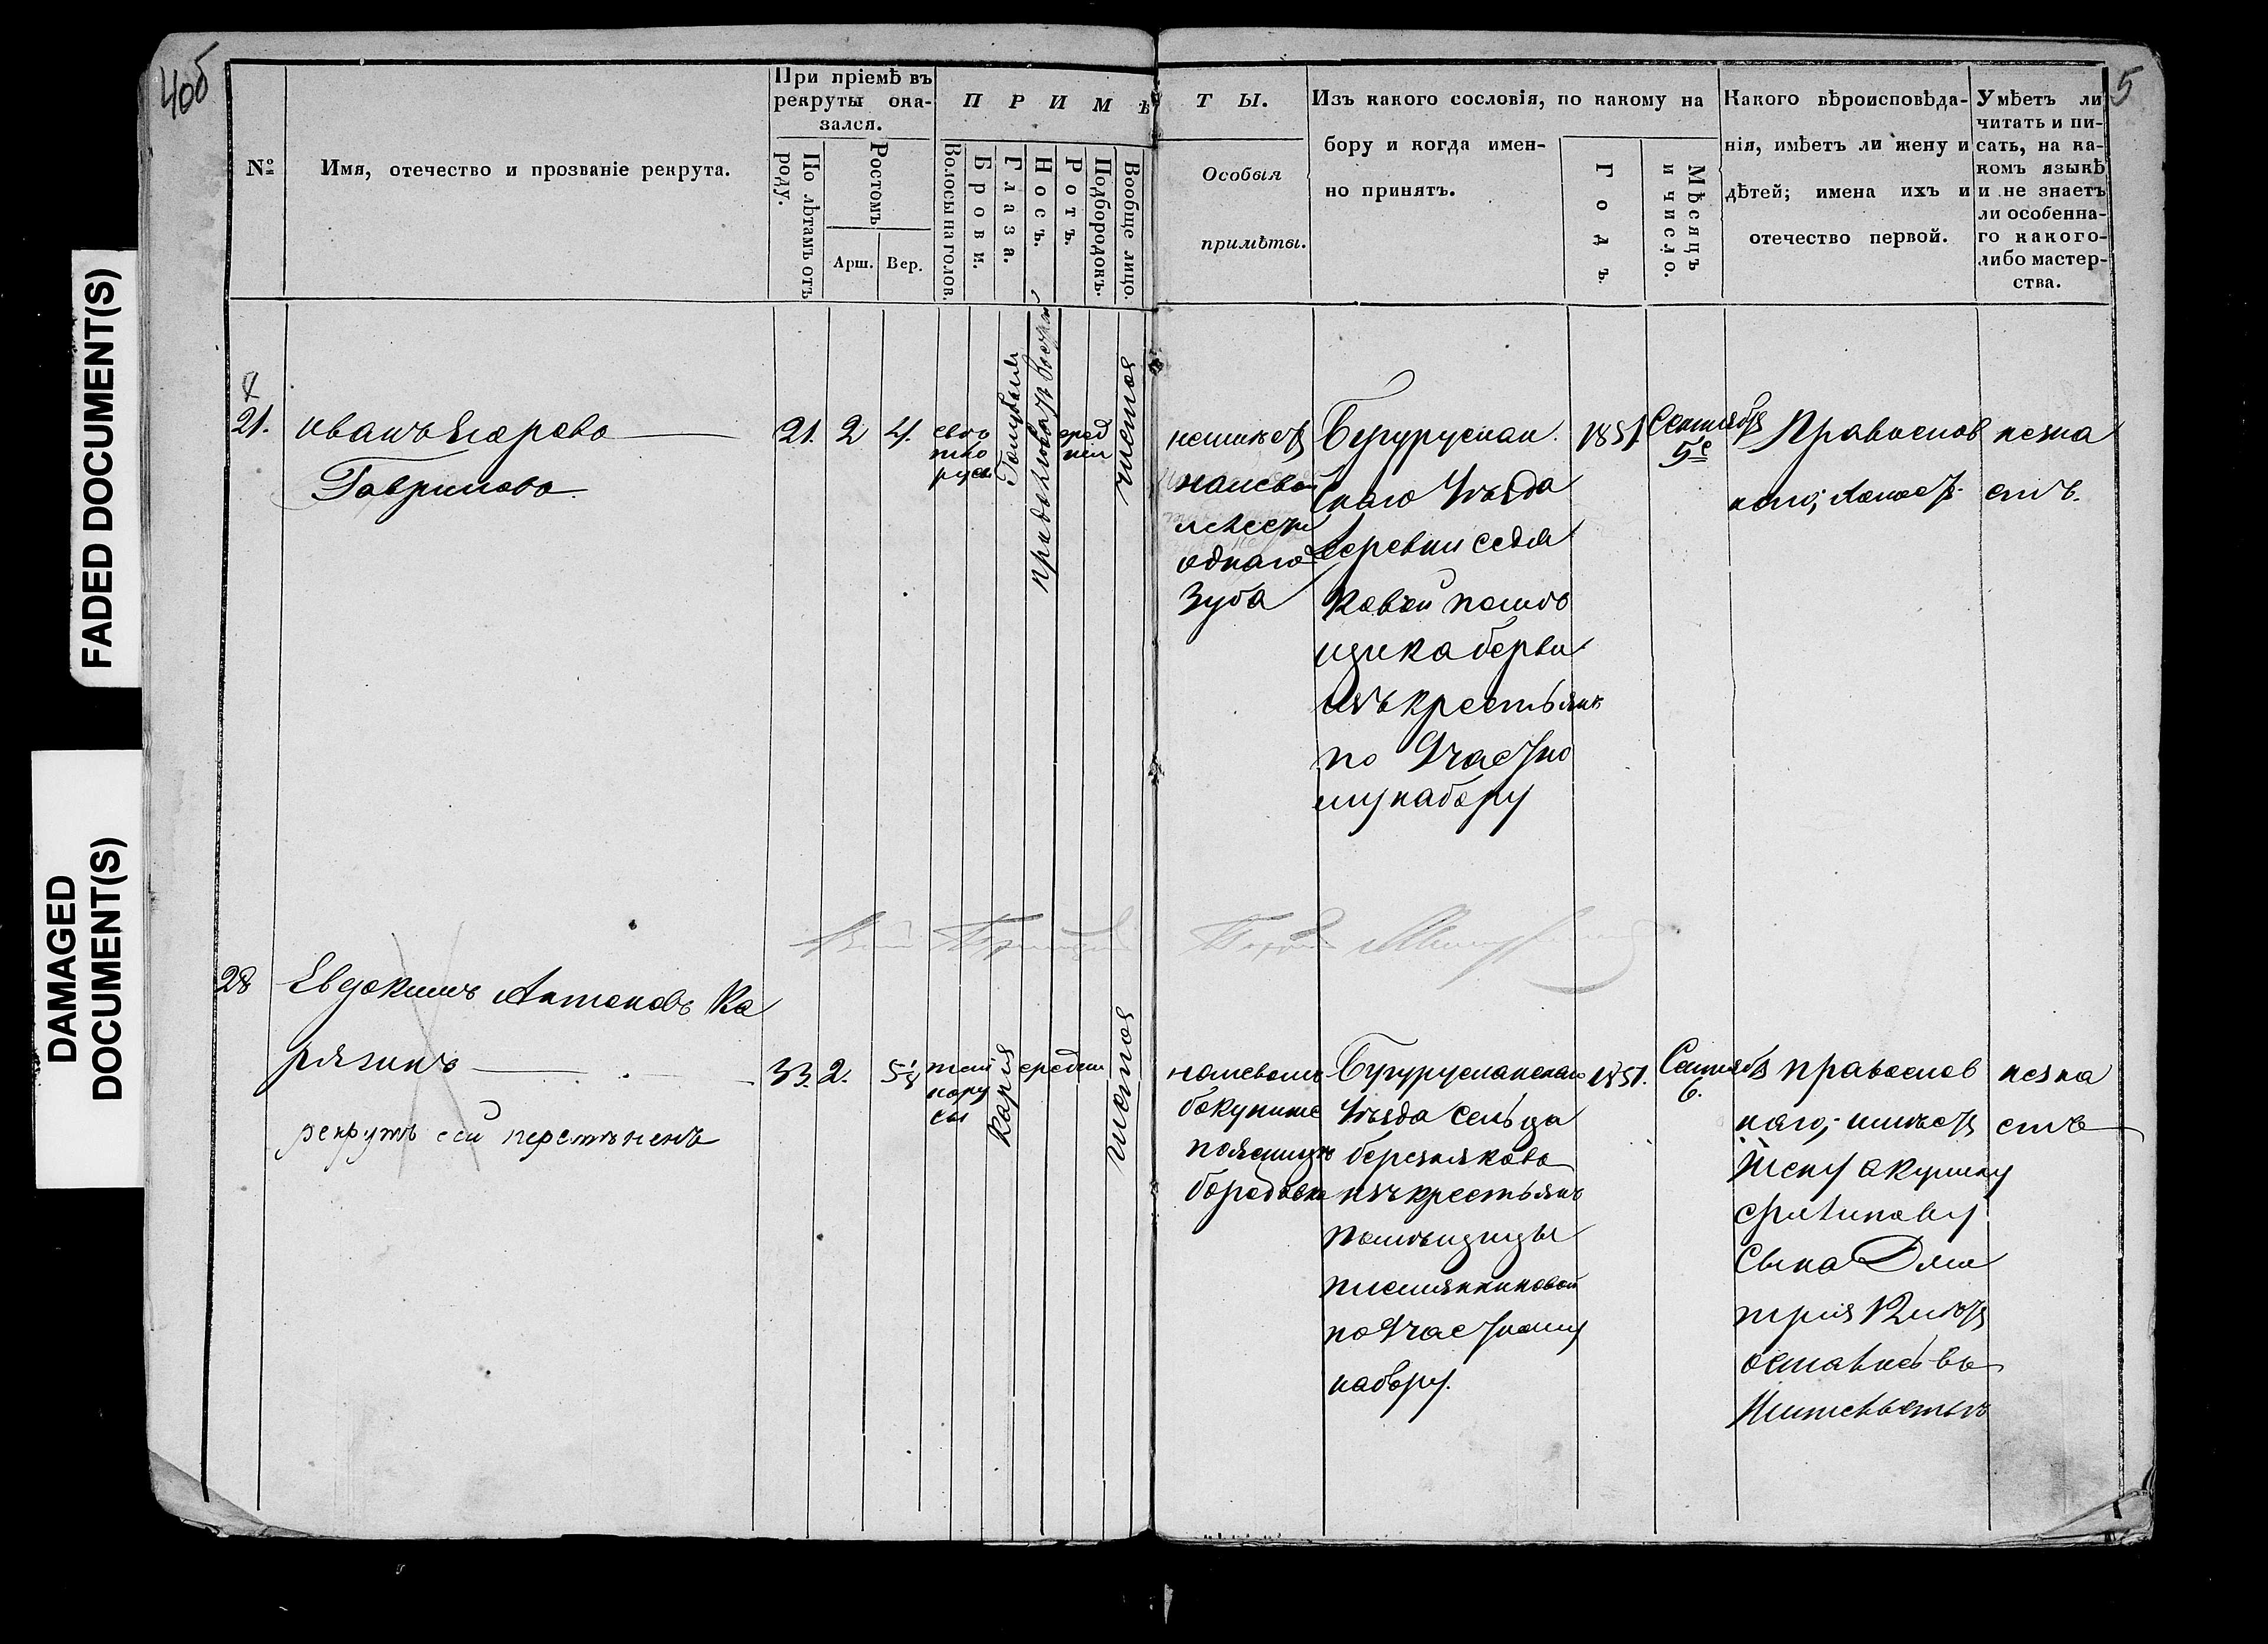 FADED DOCUMENT(S)
DAMAGED
DOCUMENT(S)
4об
5
№
Имя, отечество и прозваніе рекрута.
При пріемѣ въ
рекруты ока-
зался.
По лѣтамъ отъ
роду.
Ростомъ
Арш.
Вер.
ПРИМѢ
Волосы на голов.
Брови.
Глаза.
Носъ.
Ротъ.
Подбородокъ.
Вообще лицо.
ТЫ.
Особыя
примѣты.
Изъ какого сословія, по какому на
бору и когда имен-
но принятъ.
Годъ.
Мѣсяцъ
и число.
Какого вѣроисповѣда-
нія, имѣетъ ли жену и
дѣтей; имена ихъ и
отечество первой.
Умѣетъ ли
читать и пи-
сать, на ка-
комъ языкѣ
и не знаетъ
ли особенна-
го какого-
либо мастер-
ства.
21.
иванъ Егорово
Гаврилово
21. 2 4.
свѣ
тло
русы
Голубыя
сред
нiя
чистое
неимѣетъ
налевой
челюсти
однаго
Зуба
Бугуруслан
скаго Уѣзда
Деревни
помѣ
щика
изъ крестьянъ
по Участко
му набору
1851
Сентября
5е
Православ
наго; холостъ
незна
етъ.
28
Евдокимъ Антоновъ Ка
рязинъ
рекрутъ сей перемѣненъ
33. 2. 5⅛
тем
нору
сы
Карiя
среднiя
чистое
налевомъ
боку ниже
поясницы
бородовка
Бугурусланскаго
Уѣзда сельца
березняково
изъ крестьянъ
помѣщицы
племянниковой
по Участкому
набору.
1851.
Сентября
6.
православ
наго; имѣетъ
жену акулину
сына Дми
трiя
незна
етъ